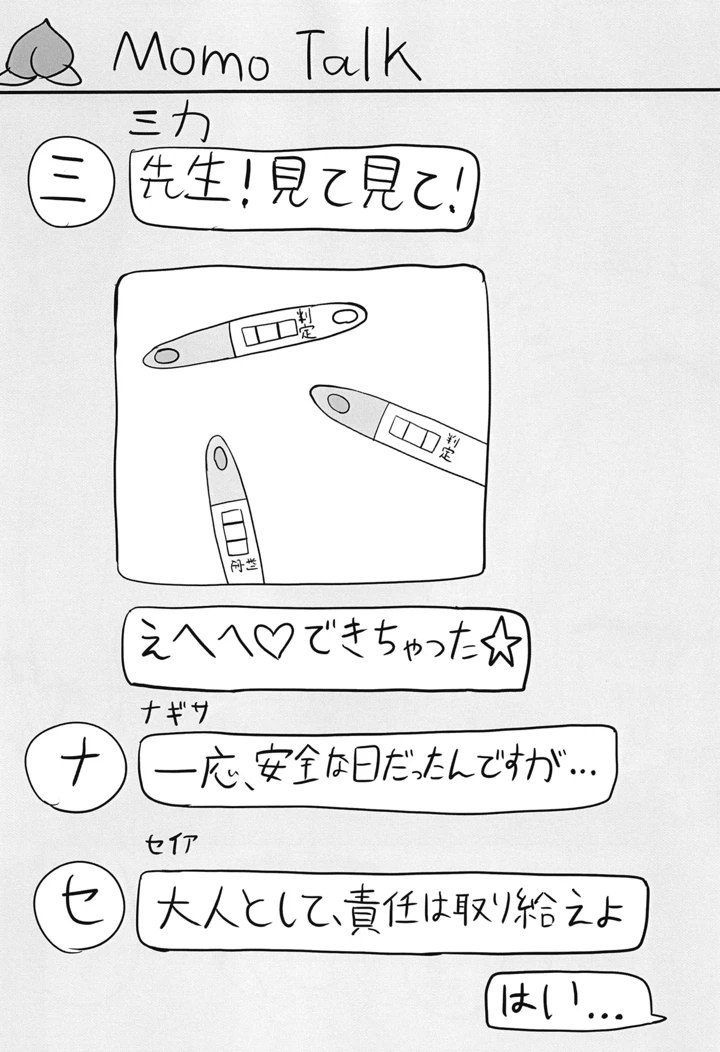 Momo Talk
ミカ
ミ
先生!見て見て!
判定
判定
判定
えへへ♡できちゃった☆
ナギサ
ナ
一応、安全な日だったんですが…
セイア
セ
大人として、責任は取り給えよ
はい…